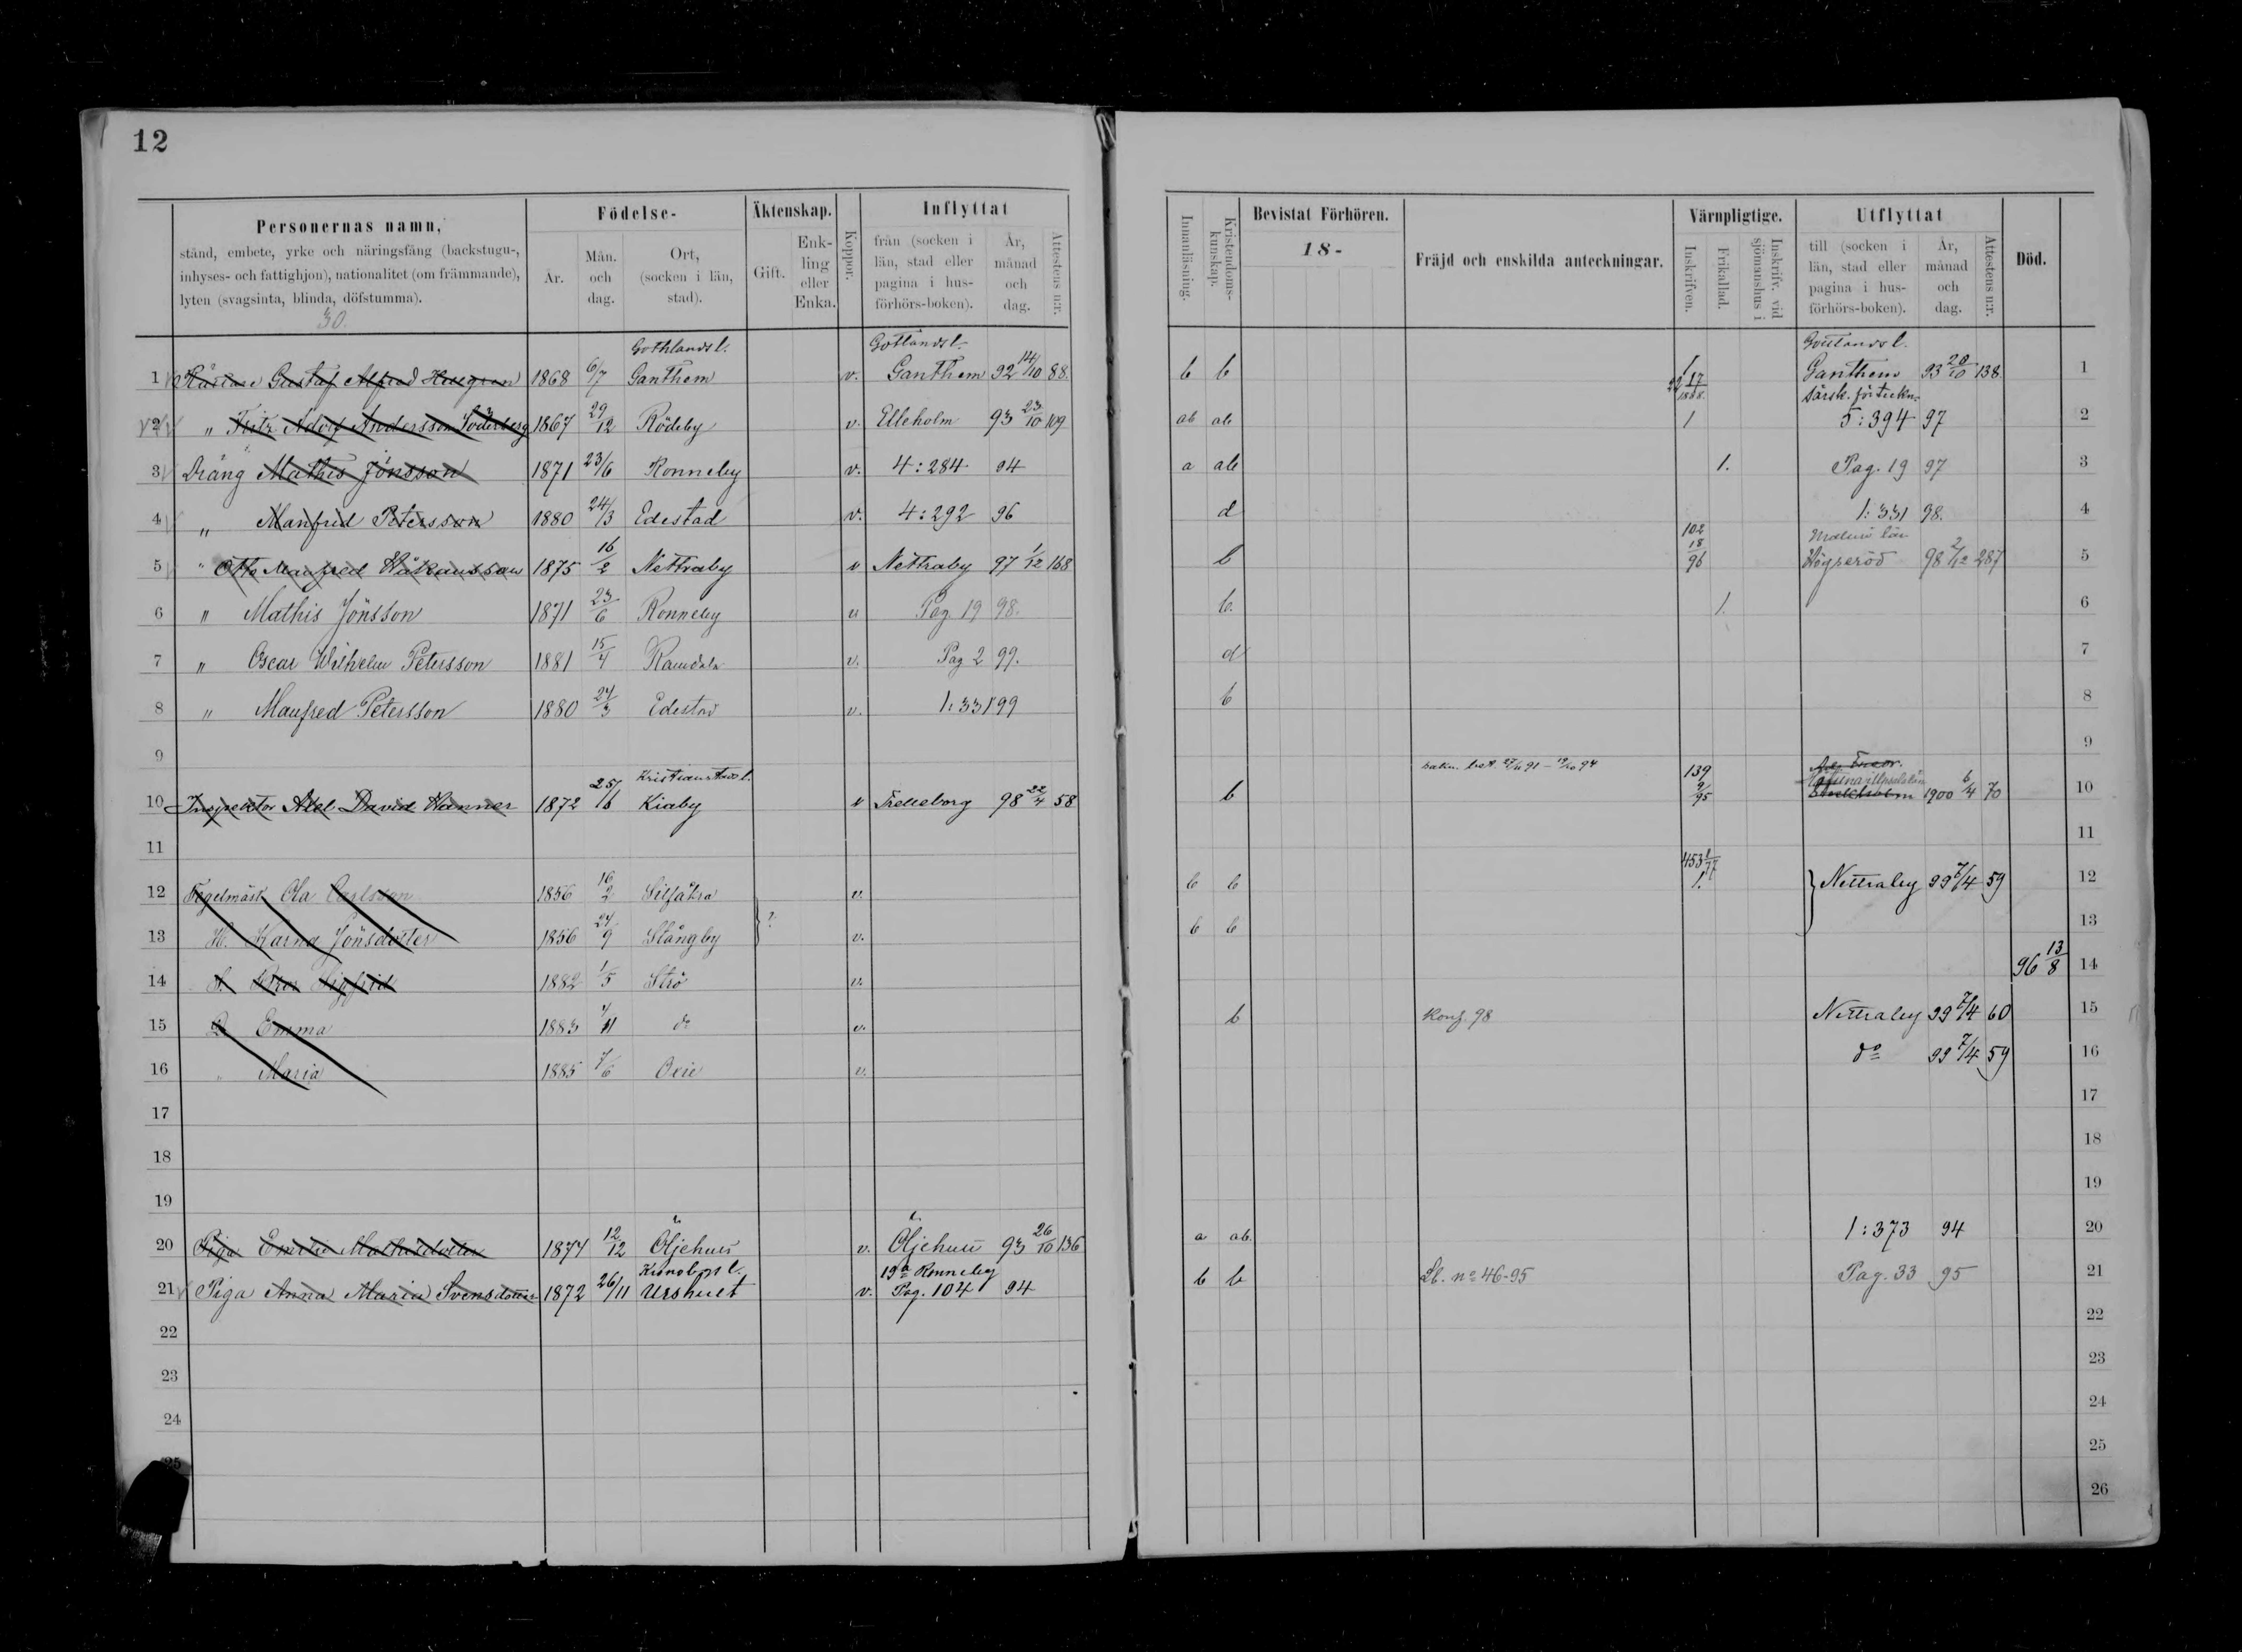 12
Personernas namn,
stånd, embete, yrke och näringsfång (backstugu-,
inhyses- och fattighjon), nationalitet (om främmande),
lyten (svagsinta, blinda, döfstumma).
30.
Födelse-
År.
Mån. och dag.
Ort, (socken i län, stad).
Äktenskap.
Gift.
Enkling eller Enka.
Koppor.
Inflyttat
från (socken i län, stad eller pagina i husförhörs-boken).
År, månad och dag.
Attestens n:r.
Innanläsning.
Kristendoms-kunskap.
Bevistat Förhören.
18-
Fräjd och enskilda anteckningar.
Värnpligtige.
Inskrifven.
Frikallad.
Inskrifv. vid sjömanshus i
Utflyttat
till (socken i län, stad eller pagina i husförhörs-boken).
År, månad och dag.
Attestens n:r.
Död.
Gothlands l. Gotlands l. Gottlands l.
1 Gustaf Alfred 1868 6/7 Ganthem v. Ganthem 92 14/10 88. b b 1 Ganthem 93 20/10 138. 1
22 17/1888. särsk. förteckn.
2 " Fritz Adolf Andersson Söderberg 1867 29/12 Rödeby v. Elleholm 93 23/10 109 ab ab 1 5:394 97 2
3 Dräng Mathis Jönsson 1871 23/6 Ronneby v. 4:284 94 a ab 1. Pag. 19 97 3
4 " Manfred Petersson 1880 24/3 Edestad v. 4:292 96 d 1:331 98. 4
102 Malmö län
5 " Otto Manfred Håkansson 1875 16/2 Nettraby v Nettraby 97 1/12 168 b 18/96 Högseröd 98 2/12 287 5
6 " Mathis Jönsson 1871 23/6 Ronneby v Pag. 19 98. b. 1. 6
7 " Oscar Wilhelm Petersson 1881 15/4 Ramdala v. Pag 2 99. d 7
8 " Manfred Petersson 1880 24/3 Edestad v. 1:331 99 b 8
9 9
Kristianstads l. 139
10 Inspektor Axel David Hanner 1872 25/6 Kiaby v Trelleborg 98 22/4 58 b 9/95 Stockholm 1900 6/4 70 10
11 11
453 1/77
12 Tegelmäst Ola Carlsson 1856 16/2 Silfåkra v. b b 1. Nettraby 99 7/4 59 12
13 H. Karna Jönsdotter 1856 24/9 Stångby ? v. b b 13
14 S. Sigfrid 1882 1/5 Strö v. 96 13/8 14
15 D. Emma 1883 /11 do v. b Konf. 98 Nettraby 99 7/4 60 15
16 " Maria 1885 7/6 Oxie v. do 99 7/4 59 16
17 17
18 18
19 19
20 Piga Emelie Mathisdotter 1874 12/12 Öljehult v. Öljehult 93 26/10 136 a ab. 1:373 94 20
Kronobergs l. 19a Ronneby
21 Piga Anna Maria Svensdotter 1872 26/11 Urshult v. Pag. 104 94 b b Lb. no 46-95 Pag. 33 95 21
22 22
23 23
24 24
25 25
26